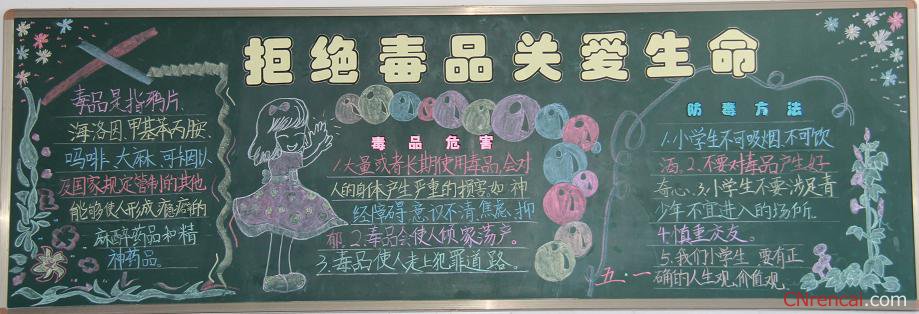 拒绝毒品关爱生命
毒品是指鸦片、
海洛因、甲基苯丙胺、
吗啡、大麻、可卡因以
及国家规定管制的其他
能够使人形成瘾癖的
麻醉药品和精
神药品。
毒品危害
1.大量或者长期使用毒品,会对
人的身体产生严重的损害如:神
经障碍、意仅不清、焦虑、抑
郁、2.毒品会使人倾家荡产。
3.毒品使人走上犯罪道路。
防毒方法
1.小学生不可吸烟、不可饮
酒、2.不要对毒品产生好
奇心、3.小学生不要涉足青
少年不宜进入的场所.
4.慎重交友。
5.我们小学生要有正
确的人生观、价值观.
五.一
CNrencai.com